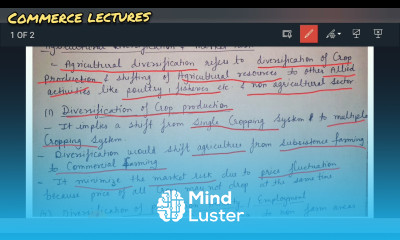 COMMERCE LECTURES
1 OF 2
- Agricultural diversification refers to diversification of Crop
Production & shifting of Agricultural resources to other Allied
activities like poultry, fisheries etc & non agricultural sector
Diversification of Crop production
- It implies a shift from Single Cropping System to multiple
Cropping System
- Diversification would shift agriculture from subsistence farming
to Commercial farming
- It minimize the market risk due to price fluctuation
because price of all may not drop at the same time
Mind
Luster
Employment
to non farm areas